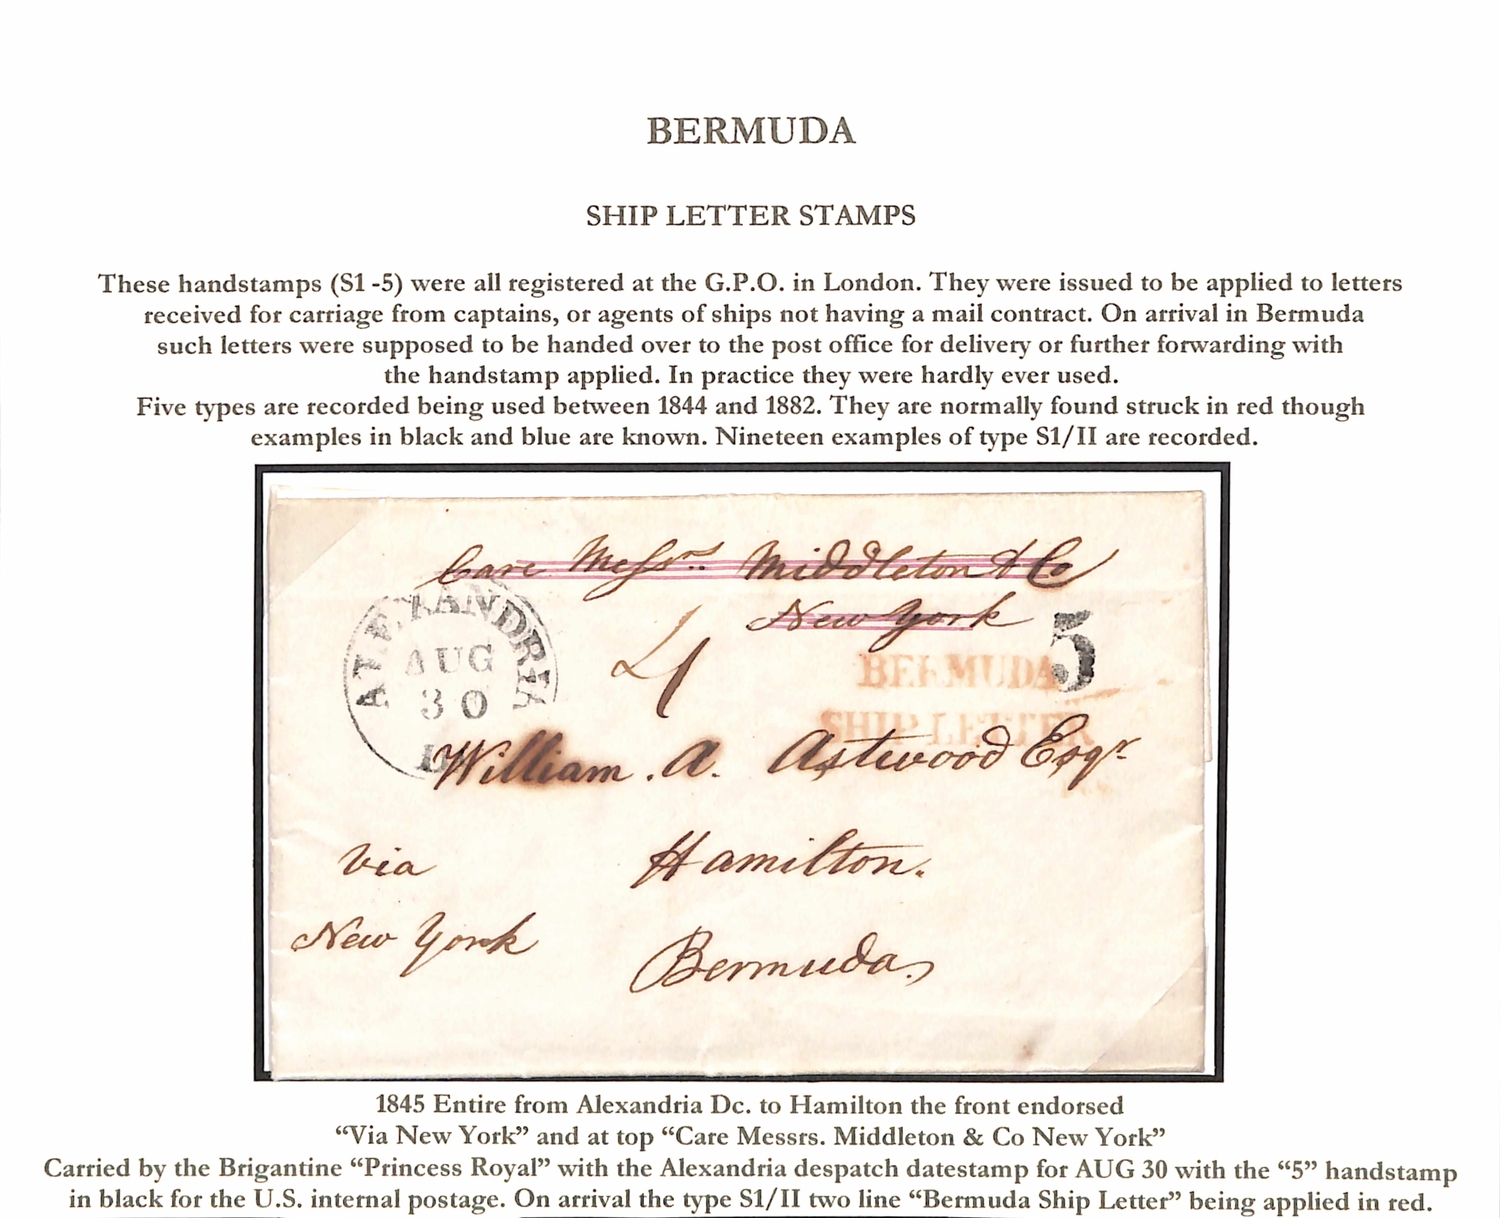 BERMUDA
SHIP LETTER STAMPS
These handstamps (S1 -5) were all registered at the G.P.O. in London. They were issued to be applied to letters
received for carriage from captains, or agents of ships not having a mail contract. On arrival in Bermuda
such letters were supposed to be handed over to the post office for delivery or further forwarding with
the handstamp applied. In practice they were hardly ever used.
Five types are recorded being used between 1844 and 1882. They are normally found struck in red though
examples in black and blue are known. Nineteen examples of type S1/II are recorded.
Care Messrs. Middleton & Co
New York
ALEXANDRIA
AUG
30
4
5
BERMUDA
SHIP LETTER
William . A. Astwood Esqr
Hamilton.
Bermuda
via
New York
1845 Entire from Alexandria Dc. to Hamilton the front endorsed
“Via New York” and at top “Care Messrs. Middleton & Co New York”
Carried by the Brigantine “Princess Royal” with the Alexandria despatch datestamp for AUG 30 with the “5” handstamp
in black for the U.S. internal postage. On arrival the type S1/II two line “Bermuda Ship Letter” being applied in red.